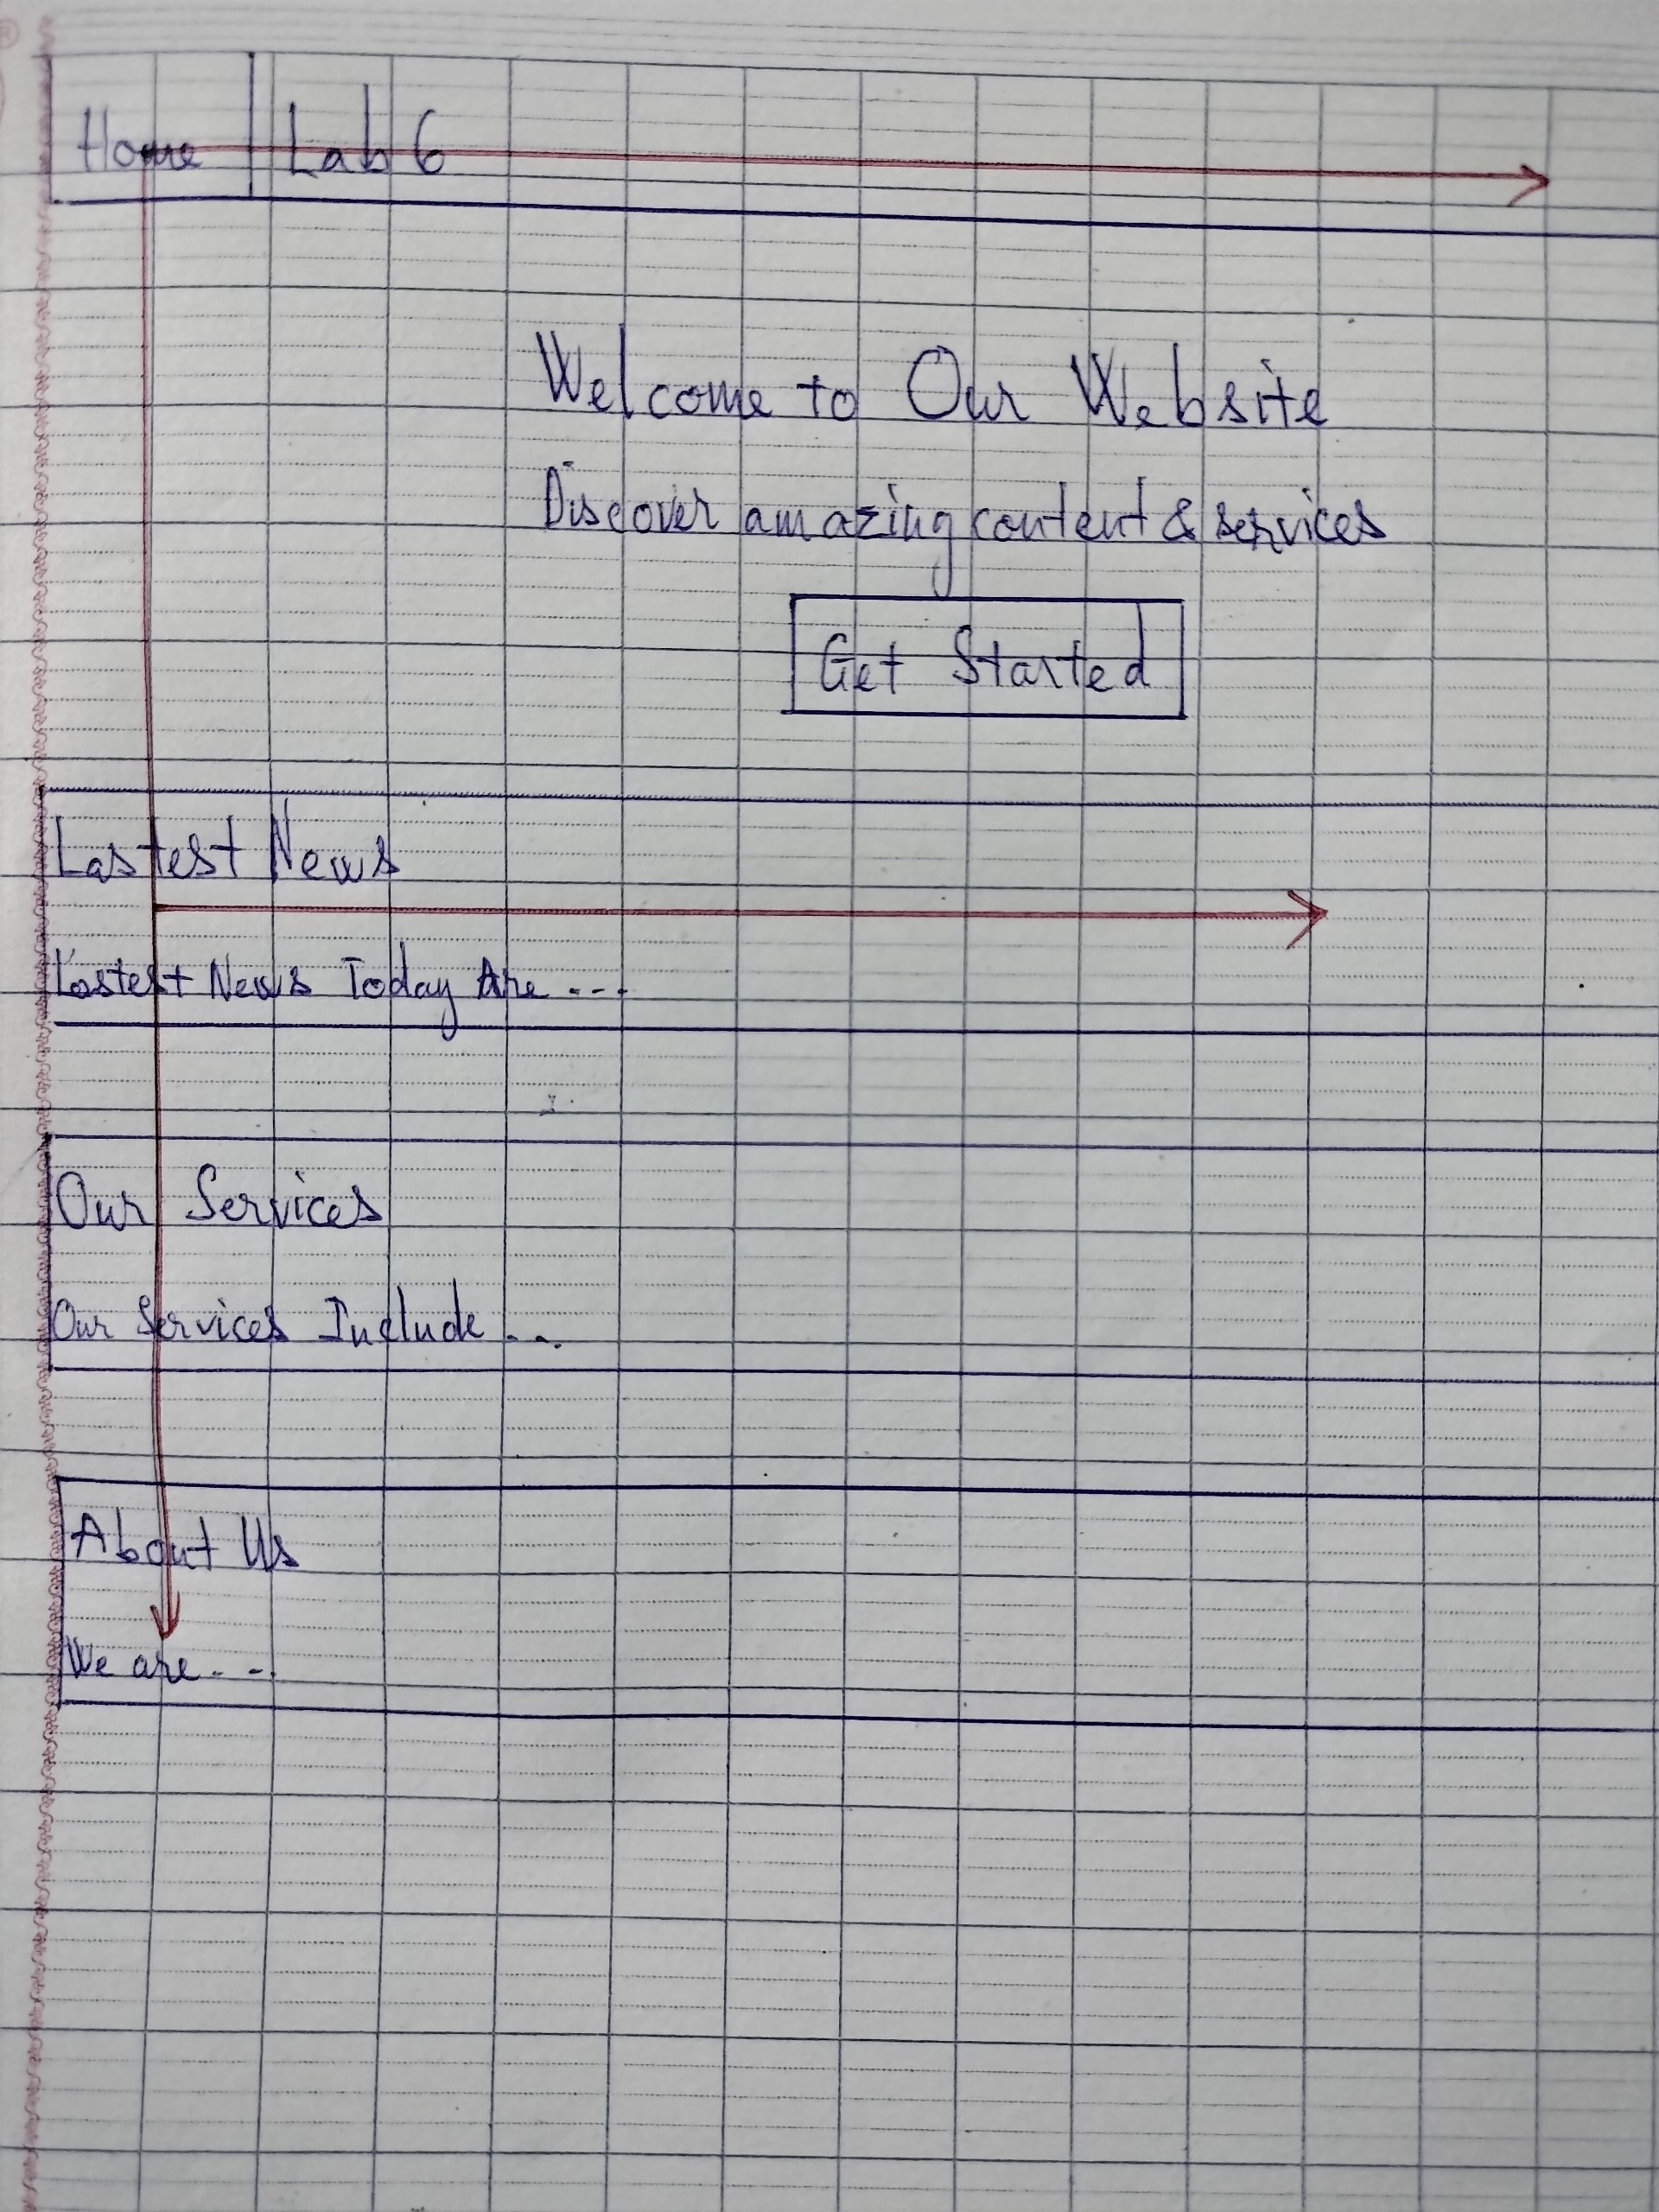 Home Lab 6
Welcome to Our Website
Discover amazing content & services
Get Started
Lastest News
Lastest News Today Are ...
Our Services
Our Services Include ...
About Us
We are ...